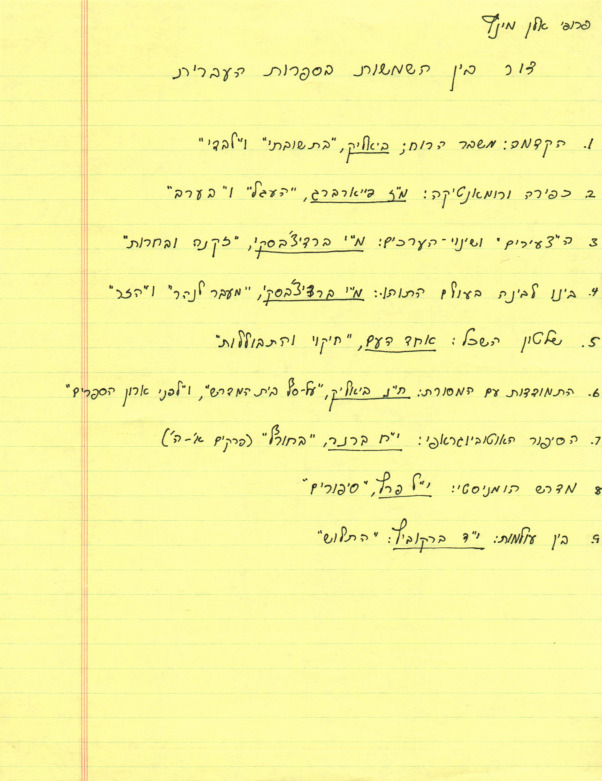 פרופי אלן מינץ
דור בין השמשות בספרות העברית
1. הקדמה: משבר הרוח; ביאליק, "בתשובתי" ו"לבדי"
2 כפירה ורומאנטיקה: מ"ז פייארברג, "העגל" ו"בערב"
3 ה"צעירים" ושינוי-הערכים: מ"י ברדיצ'בסקי, "זקנה ובחרות"
4. בינו לבינה בעולם התוהו: מ"י ברדיצ'בסקי, "מעבר לנהר" ו"הזר"
5. שלטון השכל: אחד העם, "חיקוי והתבוללות"
6. התמודדות עם המסורת: ח"נ ביאליק, "על-סף בית המדרש", ו"לפני ארון הספרים"
7. הסיפור האוטוביוגראפי: י"ח ברנר, "בחורף" (פרקים א'-ה')
8 מדרש הומניסטי: י"ל פרץ, "סיפורים"
9. בין עולמות: י"ד ברקוביץ: "התלוש"